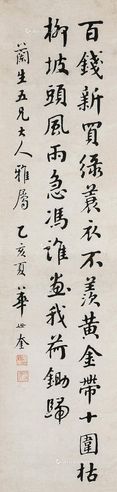 百錢新買綠蓑衣不羨黃金帶十圍枯
柳坡頭風雨急馮誰畫我荷鋤歸
蘭生五兄大人雅屬 乙亥夏 華世奎